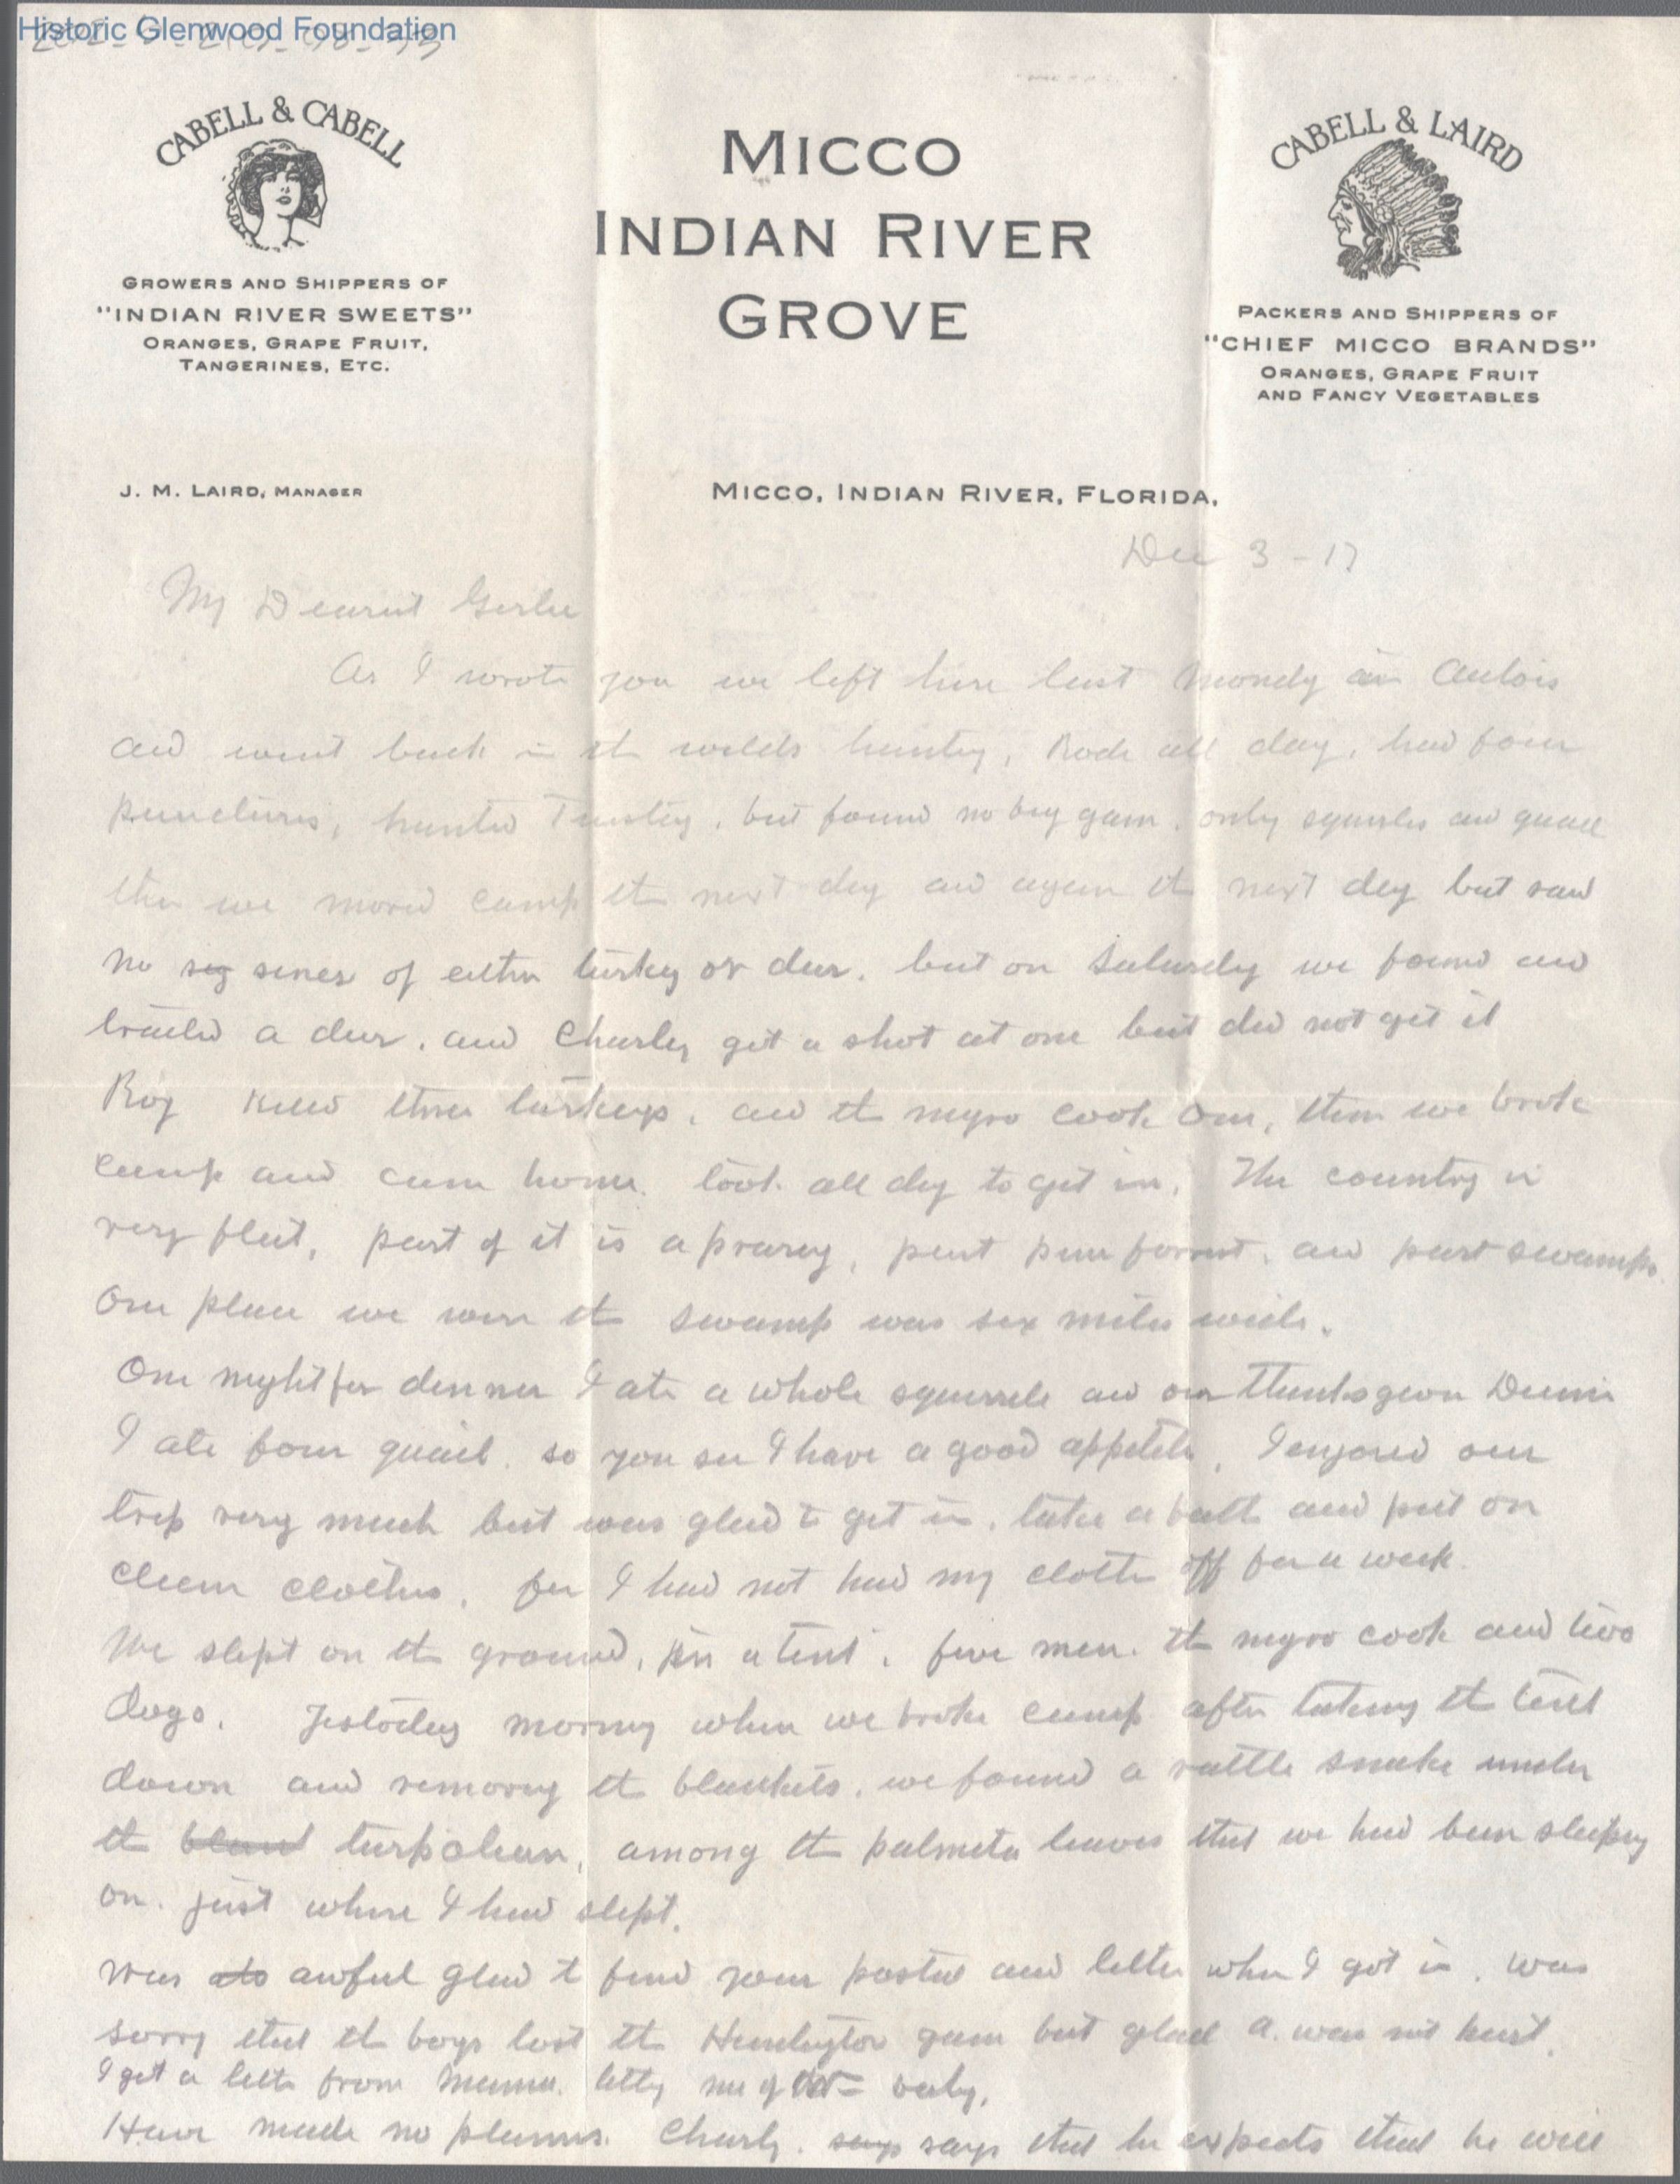 Historic Glenwood Foundation
CABELL & CABELL
GROWERS AND SHIPPERS OF
"INDIAN RIVER SWEETS"
ORANGES, GRAPE FRUIT,
TANGERINES, ETC.
MICCO
INDIAN RIVER
GROVE
CABELL & LAIRD
PACKERS AND SHIPPERS OF
"CHIEF MICCO BRANDS"
ORANGES, GRAPE FRUIT
AND FANCY VEGETABLES
J. M. LAIRD, MANAGER
MICCO, INDIAN RIVER, FLORIDA,
Dec 3 - 17
My Dearest Girlie
As I wrote you we left here last Mondy in Autois
and went back in th wilds hunting, Rode all day, had four
punctures, hunted Tusday, but found no big gam, only squirles and quail
then we moved camp th next day and again th next day but saw
no sig sines of either turkey or deer. but on Saturdy we found and
trailed a deer, and Charley got a shot at one but did not get it
Roy killed three turkeys, and th negro cook one, then we broke
camp and came home. took all day to get in. The country is
very flat, part of it is a prarey, part pine forrest, and part swamp.
One place we were th swamp was six miles wide.
One night for dinner I ate a whole squirrele and on Thanksgivin Dinner
I ate four quail. so you see I have a good appetite. I enjoyed our
trip very much but was glad to get in, take a bath and put on
clean clothes, for I had not had my cloths off for a week.
We slept on th ground, in a tent, five men. th negro cook and two
dogs. Yestoday morning when we broke camp after takeing th tent
down and removing th blankets, we found a rattle snake under
th blank turpolean, among th palmeta leaves that we had been sleeping
on. just where I had slept.
Was awful glad to find your postal and letter when I got in. Was
sorry that th boys lost th Huntington game but glad A. was not hurt.
I got a letter from Mama. telling me of baby.
Have made no planns. Charly. says says that he expects that he will